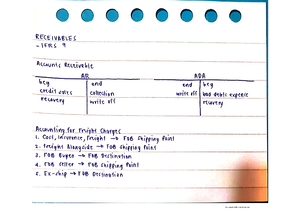 RECEIVABLES
- IFRS 9
Accounts Receivable
AR ADA
beg end end beg
credit sales collection write off bad debts expense
recovery write off recovery
Accounting for Freight Charges
1. Cost, Insurance, Freight → FOB Shipping Point
2. Freight Alongside → FOB Shipping Point
3. FOB Buyer → FOB Destination
4. FOB Seller → FOB Shipping Point
5. Ex-ship → FOB Destination